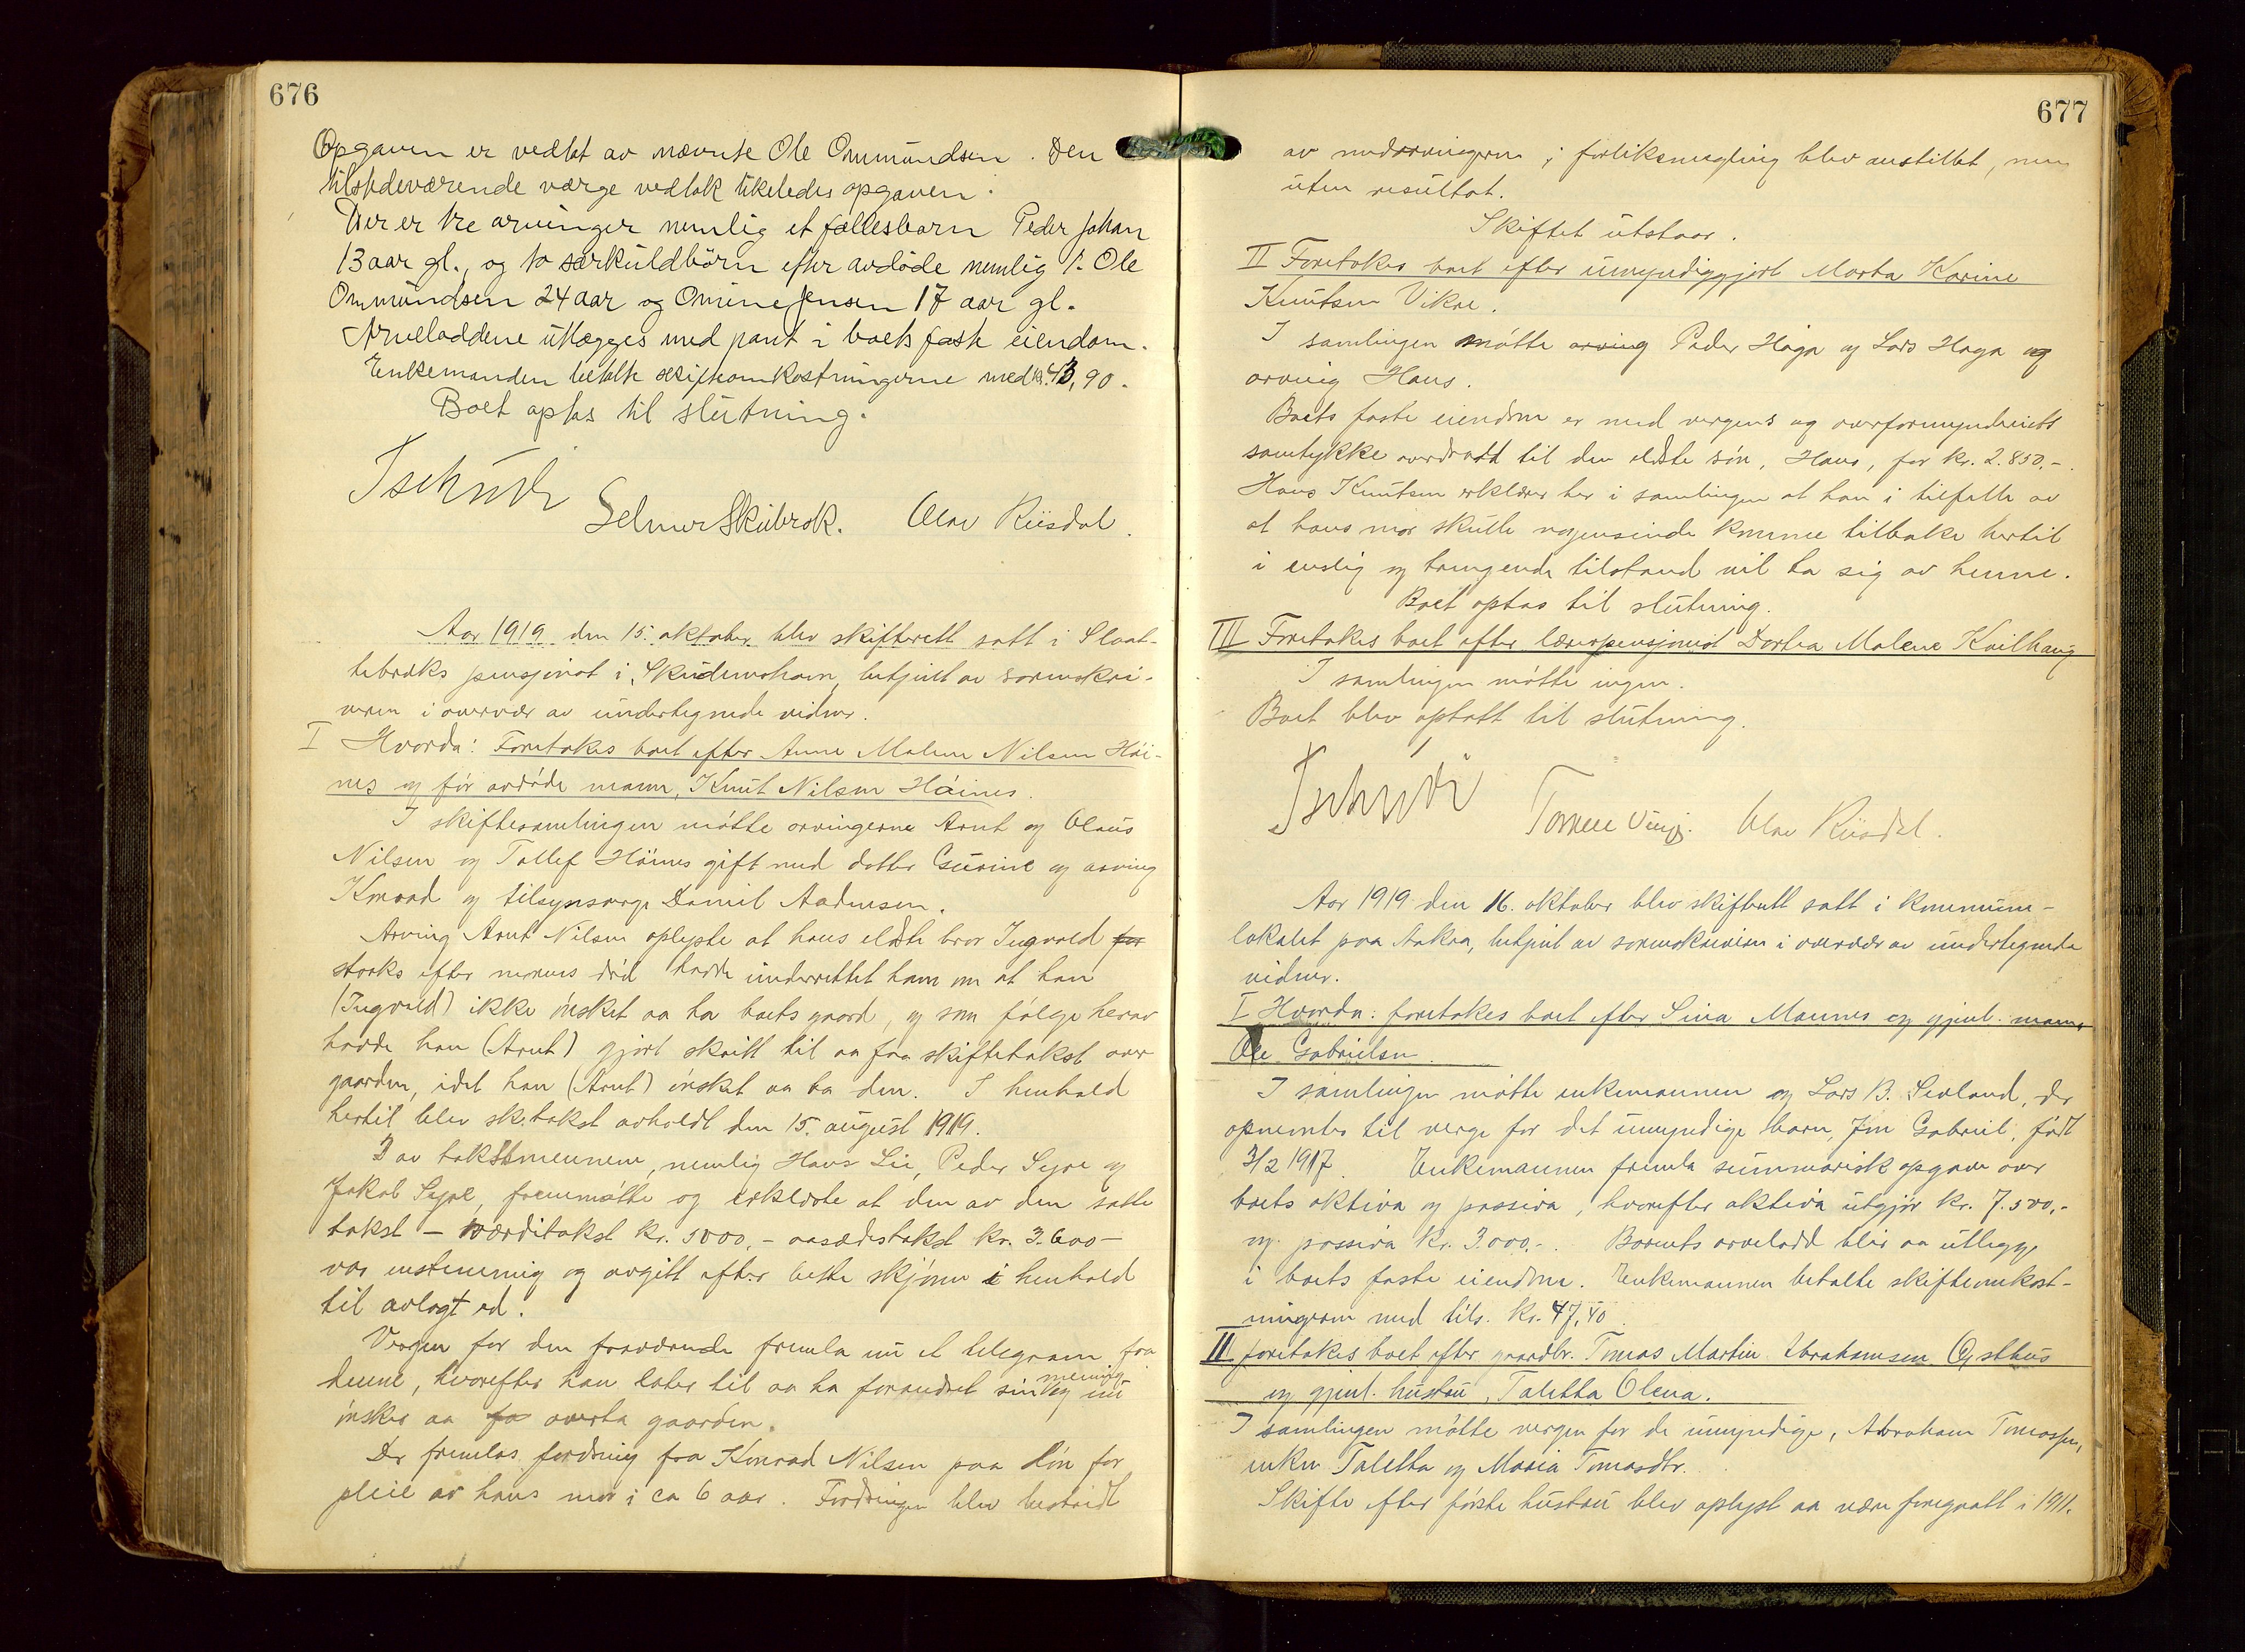 676
Opgaven er vedtat av nævnte Ole Ommundsen. Den
tilstedeværende værge vedtok likeledes opgaven.
Der er tre arvinger nemlig et fællesbarn Peder Johan
13 aar gl., og to særkuldbørn efter avdøde nemlig 1. Ole
Ommundsen 24 aar og Omine Jensen 17 aar gl.
Arveloddene utlægges med pant i boets faste eiendom.
Enkemanden betalte skifteomkostningerne med kr. 43,90.
Boet optas til slutning.
Tschudi
Selmer Skibrek. Olav Riisdal.
Aar 1919 den 15. oktober blev skifterett satt i Slaat-
tebræks pensjonat i Skudeneshavn, betjent av sorenskri-
veren i overvær av undertegnede vidner.
I Hvorda: Foretokes boet efter Anne Malene Nilsen Høi-
nes og før avdøde mann, Knut Nilsen Høines.
I skiftesamlingen møtte arvingerne Arnt og Olaus
Nilsen og Tollef Høines gift med datter Gurine og arving
Konrad og tilsynsverge Daniel Aadnesen.
Arving Arnt Nilsen oplyste at hans eldste bror Ingvald for
straks efter morens død hadde underrettet ham om at han
(Ingvald) ikke ønsket aa ha boets gaard, og som følge herav
hadde han (Arnt) gjort skritt til aa faa skiftetakst over
gaarden, idet han (Arnt) ønsket aa ta den. I henhold
hertil blev sk.takst avholdt den 15. august 1919.
3 av takstmennene, nemlig Hans Lie, Peder Syre og
Jakob Syre, fremmøtte og erklærte at den av dem satte
takst – værditakst kr. 5000,- aasædestakst kr. 3.600 –
var enstemmig og avgitt efter beste skjønn i henhold
til avlagt ed.
Vergen for den fraværende fremla nu et telegram fra
denne, hvorefter han later til aa ha forandret sin mening og nu
ønsker aa fa overta gaarden.
Der fremlas fordring fra Konrad Nilsen paa løn for
pleie av hans mor i ca 6 aar. Fordringen blev bestridt
677
av medarvingerne; forliksmegling blev anstillet, men
uten resultat.
Skiftet utstaar.
II Foretokes boet efter umyndiggjort Marta Karine
Knutsen Vikre.
I samlingen møtte arving Peder Haga og Lars Haga og
arving Hans.
Boets faste eiendom er med vergens og overformynderiets
samtykke overdradd til den eldste søn, Hans, for kr. 2.850.-.
Hans Knutsen erklærer her i samlingen at han i tilfelle av
at hans mor skulle nogensinde komme tilbake hertil
i enslig og trengende tilstand vil ta sig av henne.
Boet optas til slutning.
III Foretokes boet efter lærerpensjonist Dortea Malene Kvilhaug
I samlingen møtte ingen.
Boet blev optatt til slutning.
Tschudi Olav Riisdal.
Aar 1919 den 16. oktober blev skifterett satt i kommune-
lokalet paa Aakra, betjent av sorenskriveren i overvær av undertegnede
vidner.
I Hvorda: foretokes boet efter Sina Mannes og gjenl. mann,
Ole Gabrielsen.
I samlingen møtte enkemannen og Lars B. Sevland, der
opnevntes til verge for det umyndige barn, Jon Gabriel, født
3/2 1917. Enkemannen fremla summarisk opgave over
boets aktiva og passiva, hvorefter aktiva utgjør kr. 7.500.-
og passiva kr. 3.000.-. Barnets arvelodd blir aa utlegge
i boets faste eiendom. Enkemannen betalte skifteomkost-
ningerne med tils. kr. 47,40.
II foretokes boet efter gaardbr. Tomas Martin Abrahamsen Østhus
og gjenl. hustru, Taletta Olena.
I samlingen møtte vergen for de umyndige, Abraham Tomassen,
enken Taletta og Maria Tomasdtr.
Skifte efter første hustru blev oplyst aa være foregaatt i 1911.